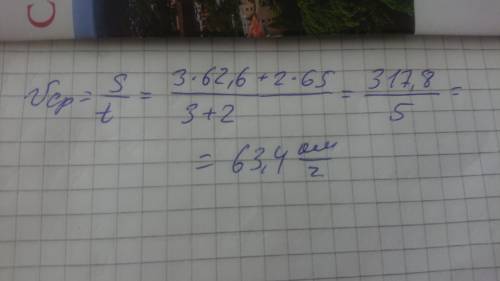 C
Vср = S/t = (3·62,6 + 2·65)/(3+2) = 317,8/5 =
= 63,4 км/ч